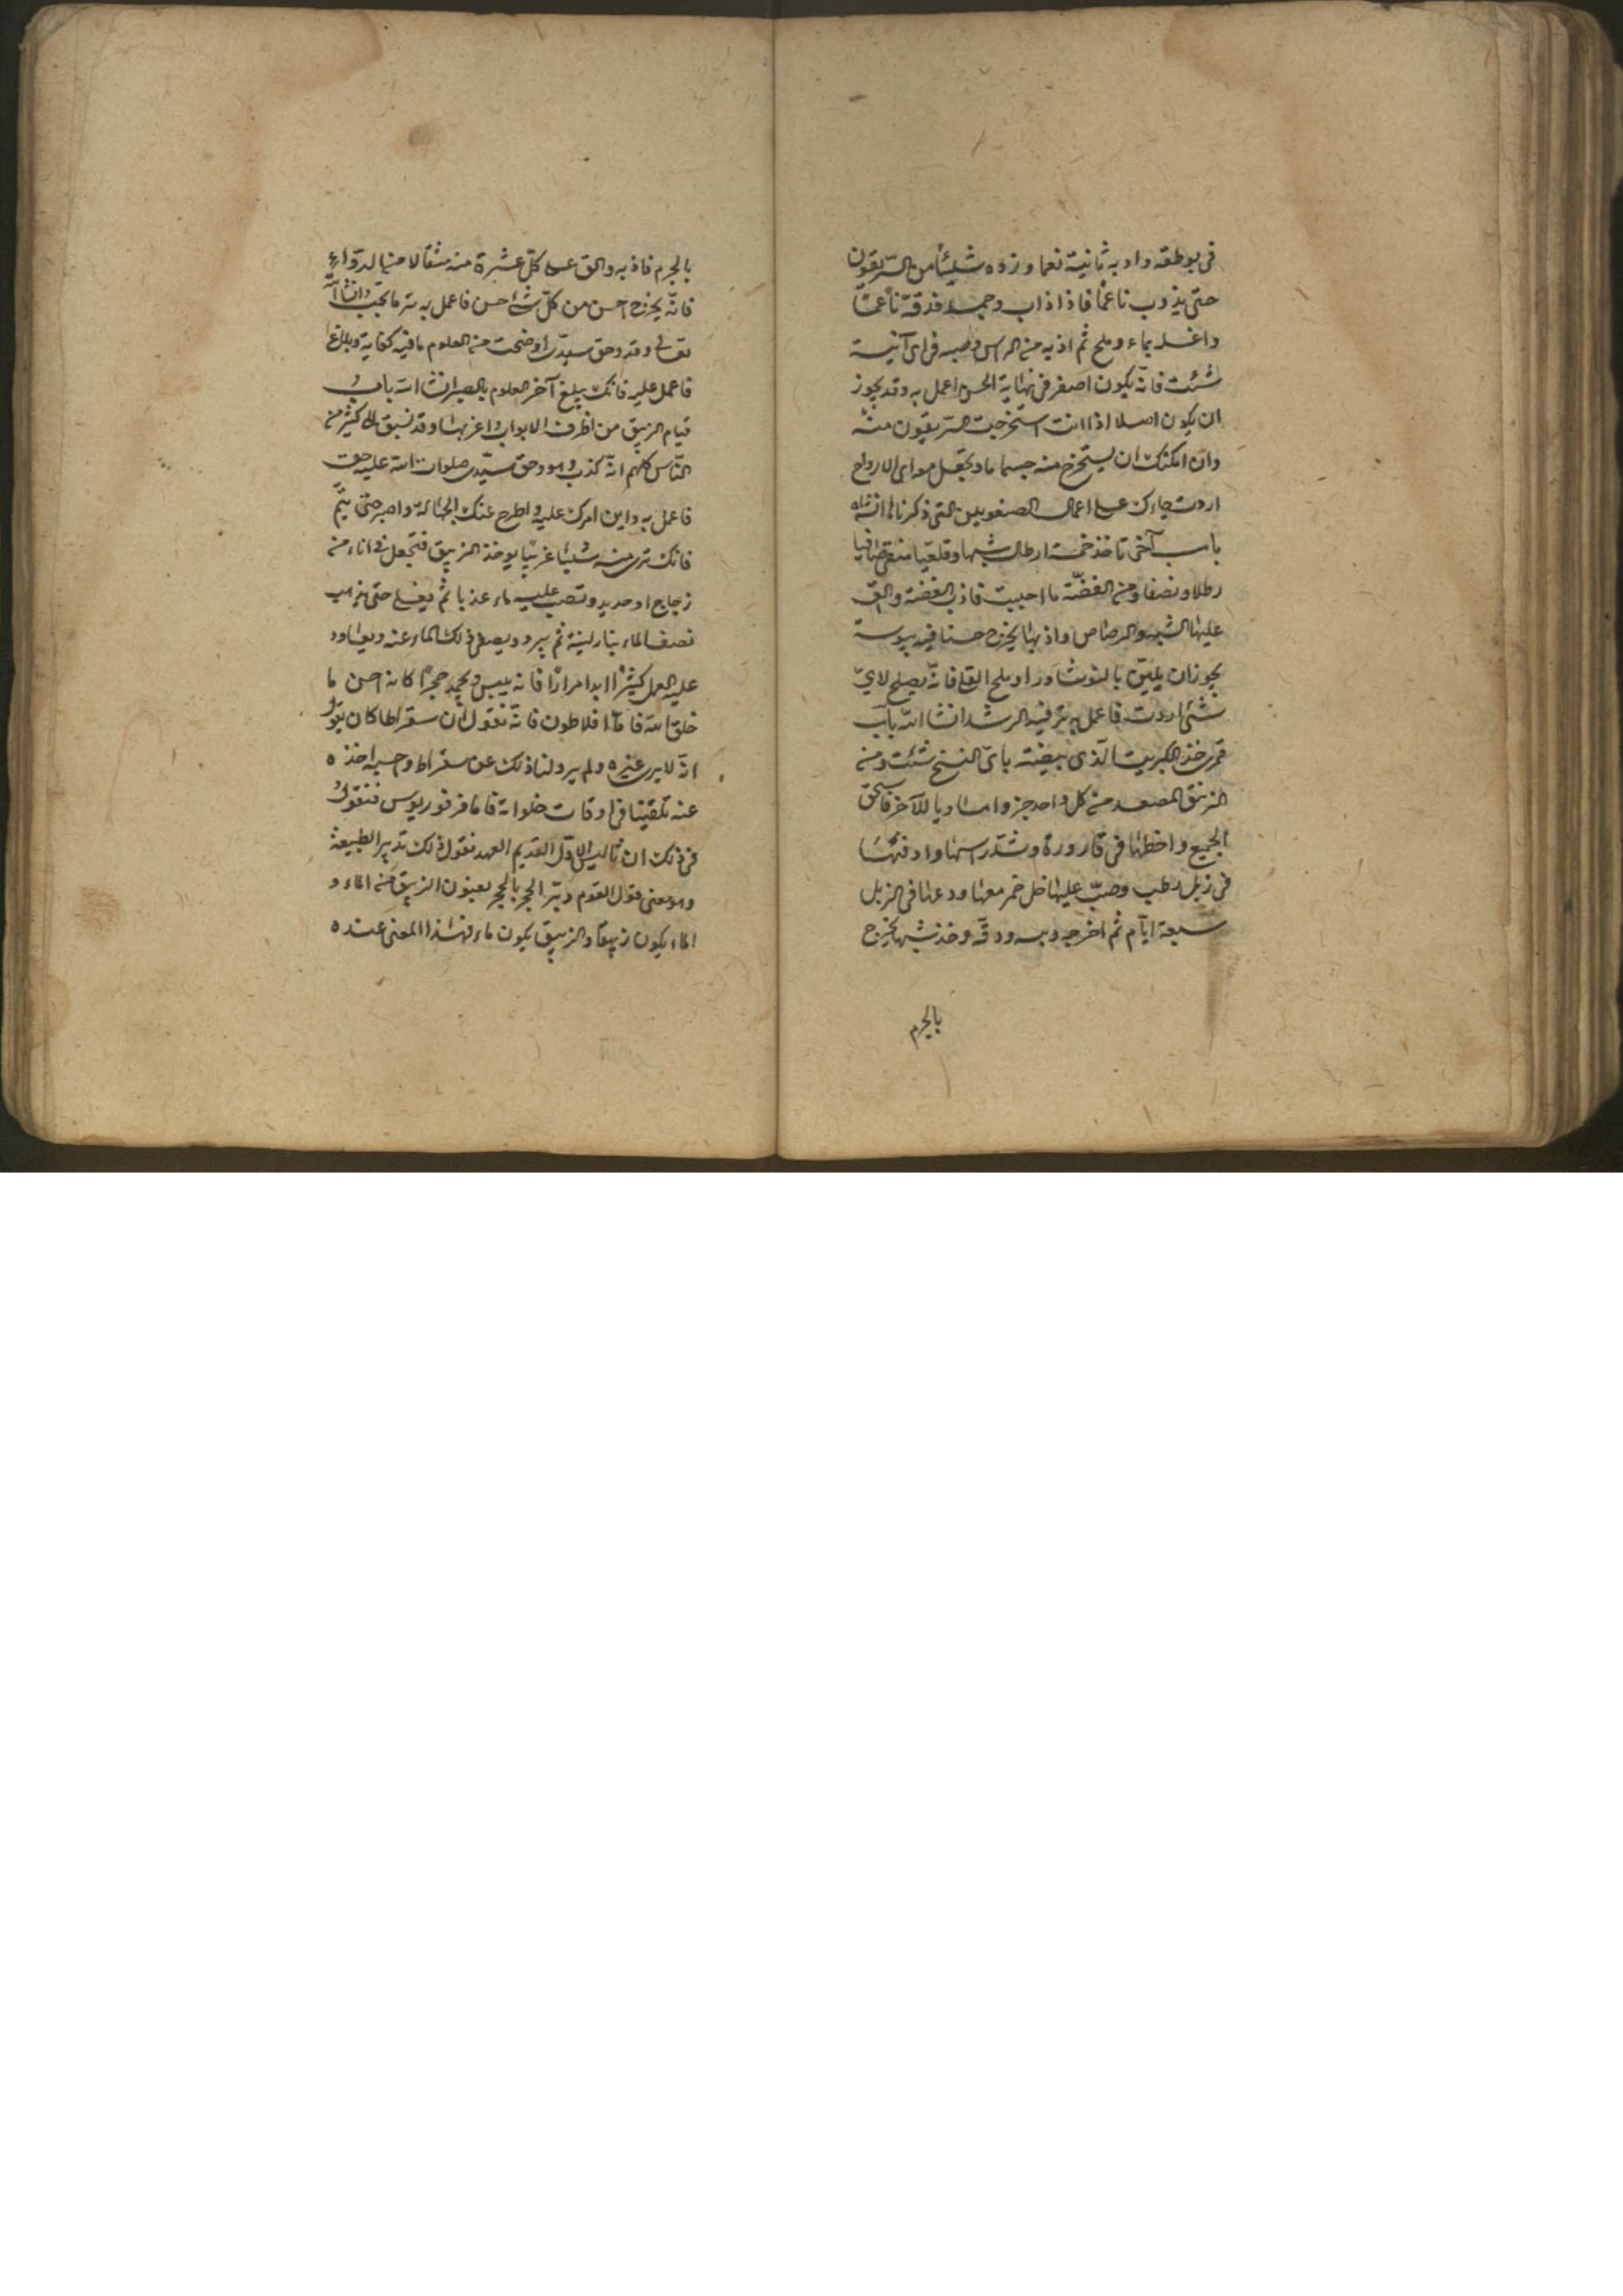 في بوطقه واد به ثانية نعما وزده شيئا من السريقون
حتى يذوب ناعما فاذا ذاب وجمد فدقه ناعما
واغسله بماء وملح ثم اذبه من الراس وصبه في اى آنية
شئت فانه يكون اصفر في نهاية الحسن اعمل به وقد يجوز
ان يكون اصلا اذا انت استخرجت السريقون منه
وان امكنك ان يستخرج منه جسما ما ويجعل مع اى الارواح
اردت جاءك على اعمال التي ذكرنا انشاء الله
باب آخر تاخذ خمسة ارطال شبها وقلعيا منقى صافيا
رطلا ونصفا ومن الفضة ما احببت فاذب الفضة والق
عليها الشبه والرصاص واذبها يخرج حسنا فيه يبوسة
يجوز ان يلين بالنوشادر او ملح القلى فانه يصلح لاي
شئ اردت فاعمل به تر فيه الرشد انشا الله باب
قمرى خذ الكبريت الذى بيضته باى النسخ شئت ومن
الزيبق المصعد من كل واحد جزوا مساويا للآخر فاسحق
الجميع واخلطها في قارورة وشد راسها وادفنها
في زبل رطب وصب عليها خل خمر معها ودعها في الزبل
سبعة ايام ثم اخرجه ويبسه ودقه وخذ شبها يخرج
بالجرم
بالجرم فاذبه والق على كل عشرة منه مثقالا من الدواء
فانه يخرج احسن من كل شئ احسن فاعمل به تر ما تحب انشا الله
تعالى وقد وحق سيدى اوضحت من العلوم ما فيه كفاية وبلاغ
فاعمل عليه فانك تبلغ آخر العلوم بالصبر انشا الله باب
قيام الزيبق من اظرف الابواب واغربها وقد نسبق الى كثير من
الناس كلهم انه كذب وهو وحق سيدى صلوات الله عليه حق
فاعمل به وابن امرك عليه واطرح عنك الجهالة واصبر حتى يتم
فانك ترى منه شيئا غريبا يوخذ الزيبق فتجعل في اناء من
زجاج او حديد وتصب عليه ماء عذبا ثم يغلى حتى يذهب
نصف الماء بنار لينة ثم يبرد ويصفى ذلك الماء عنه ويعاود
عليه العمل كثيرا ابدا مرارا فانه ييبس ويجمد حجرا كانه احسن ما
خلق الله فاما افلاطون فانه يقول ان سقراطا كان يقول
انه لا يرى غيره ولم يرو لنا ذلك عن سقراط واحسبه اخذه
عنه تلقينا في اوقات خلواته فاما فرفوريوس فيقول
في ذلك ان ثاليس الاول القديم العهد يقول ذلك تدبير الطبيعة
وهو معنى قول القوم دبر الحجر بالحجر يعنون الزيبق من الماء و
الماء يكون زيبقا والزيبق يكون ماء فهذا المعنى عنده